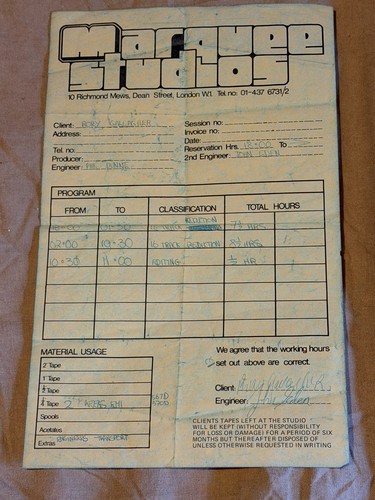 Marquee
Studios
10 Richmond Mews, Dean Street, London W.1. Tel. no: 01-437 6731/2
Client: RORY GALLAGHER
Address:
Tel. no:
Producer:
Engineer:
Session no:
Invoice no:
Date:
Reservation Hrs. To
2nd Engineer: JOHN EDEN
PROGRAM
FROM TO CLASSIFICATION TOTAL HOURS
REDUCTION
16 TRACK HRS
02:00 10:30 16 TRACK REDUCTION 8½ HRS
10:30 11:00 ½ HR
MATERIAL USAGE
2" Tape
1" Tape
½" Tape
¼" Tape
Spools
Acetates
Extras
We agree that the working hours
set out above are correct.
Client:
Engineer: John Eden
CLIENTS TAPES LEFT AT THE STUDIO
WILL BE KEPT (WITHOUT RESPONSIBILITY
FOR LOSS OR DAMAGE) FOR A PERIOD OF SIX
MONTHS BUT THEREAFTER DISPOSED OF
UNLESS OTHERWISE REQUESTED IN WRITING